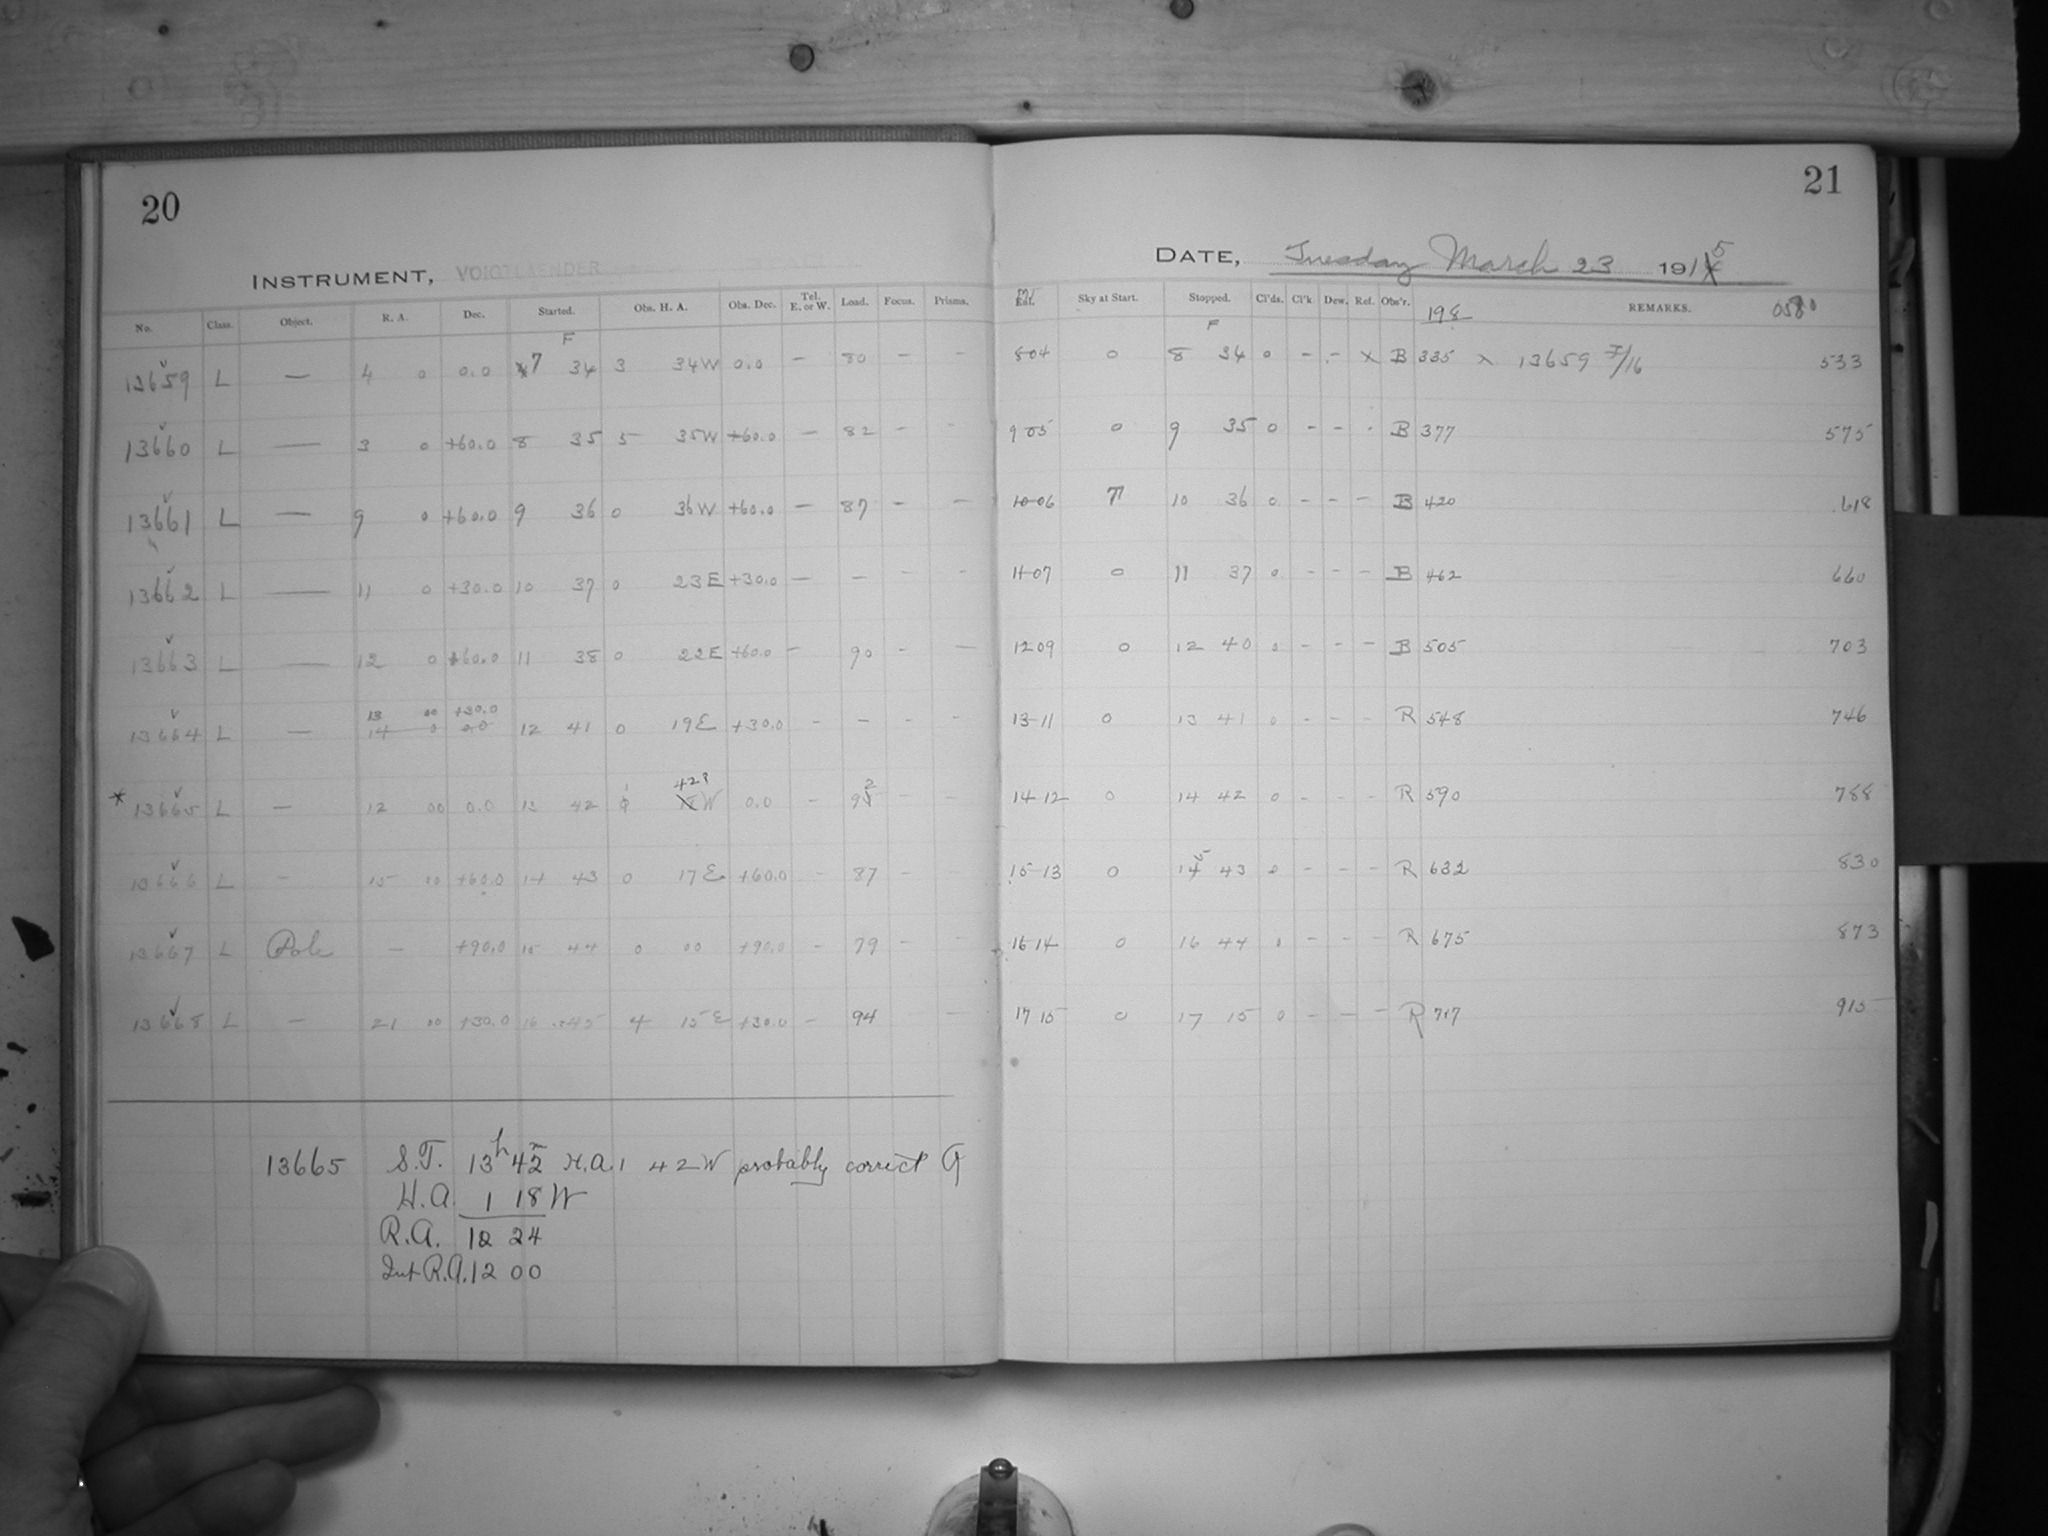 20
INSTRUMENT, VOIGTLAENDER
No. Class. Object. R. A. Dec. Started. Obs. H. A. Obs. Dec. Tel. E. or W. Load. Focus. Prisms.
F
13659 L — 4 0 0.0 7 34 3 34W 0.0 — 80 — —
13660 L — 3 0 +60.0 8 35 5 35W +60.0 — 82 - -
13661 L — 9 0 +60.0 9 36 0 36W +60.0 — 87 — —
13662 L — 11 0 +30.0 10 37 0 23E +30.0 — — - -
13663 L — 12 0 +60.0 11 38 0 22E +60.0 — 90 - —
13 00 +30.0
13664 L — 14 0 0.0 12 41 0 19E +30.0 - - - -
1 42? 2
* 13665 L — 12 00 0.0 13 42 W 0.0 - 9 - -
13666 L - 15 00 +60.0 14 43 0 17E +60.0 - 87 - -
13667 L Pole — +90.0 15 44 0 00 +90.0 - 79 - -
13668 L - 21 00 +30.0 16 45 4 15E +30.0 - 94 - -
13665 S.T. 13h 42 H.A. 1 42W probably correct G
H.A. 1 18W
R.A. 12 24
Int R.A. 12 00
21
DATE, Tuesday March 23 1915
Est. Sky at Start. Stopped. Cl'ds. Cl'k. Dew. Ref. Obs'r. 198 REMARKS. 0580
F
8 04 0 8 34 0 - - x B 335 x 13659 I/16 533
9 05 0 9 35 0 - - · B 377 575
10 06 7 10 36 0 - - - B 420 618
11 07 0 11 37 0 - - - B 462 660
12 09 0 12 40 0 - - - B 505 703
13 11 0 13 41 0 - - - R 548 746
14 12 0 14 42 0 - - - R 590 788
15 13 0 15 43 0 - - - R 632 830
16 14 0 16 44 0 - - - R 675 873
17 15 0 17 15 0 - - - R 717 915